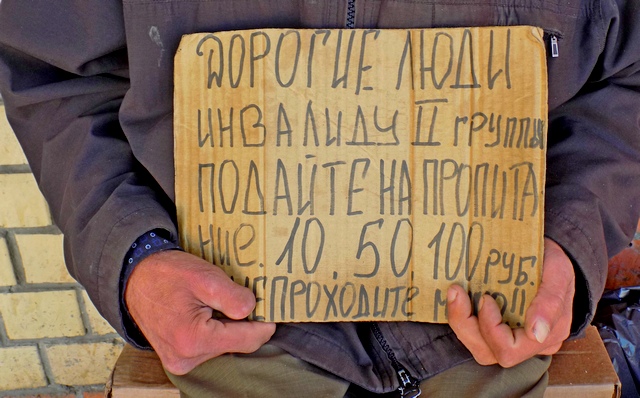 ДОРОГИЕ ЛЮДИ
ИНВАЛИДУ II ГРУППЫ
ПОДАЙТЕ НА ПРОПИТА
НИЕ. 10. 50 100 РУБ.
ПРОХОДИТЕ